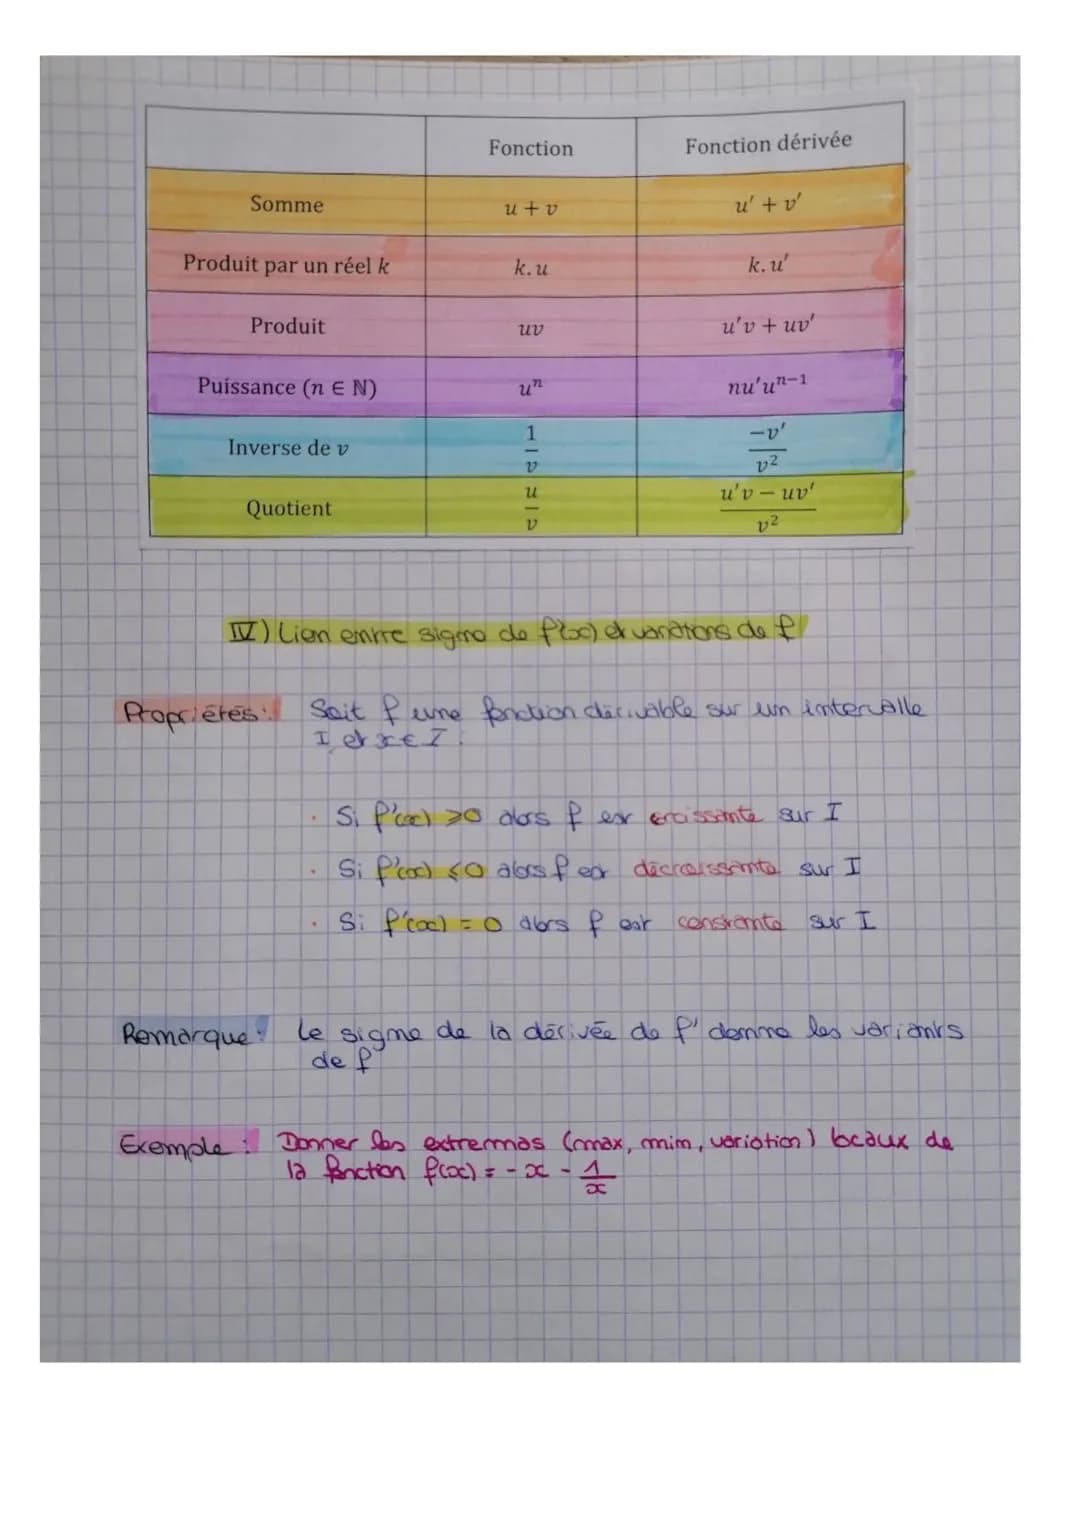 Fonction Fonction dérivée
Somme u + v u' + v'
Produit par un réel k k. u k. u'
Produit uv u'v + uv'
Puissance (n ∈ ℕ) uⁿ nu'uⁿ⁻¹
Inverse de v 1/v -v'/v²
Quotient u/v (u'v - uv')/v²
IV) Lien entre signe de f'(x) et variations de f
Propriétés : Soit f une fonction dérivable sur un intervalle
I et x ∈ I.
· Si f'(x) ⩾0 alors f est croissante sur I
· Si f'(x) ⩽0 alors f est décroissante sur I
· Si f'(x) = 0 alors f est constante sur I
Remarque : Le signe de la dérivée de f' donne les variants
de f
Exemple : Donner les extremmas (max, min, variation) locaux de
la fonction f(x) = - x - 1/x